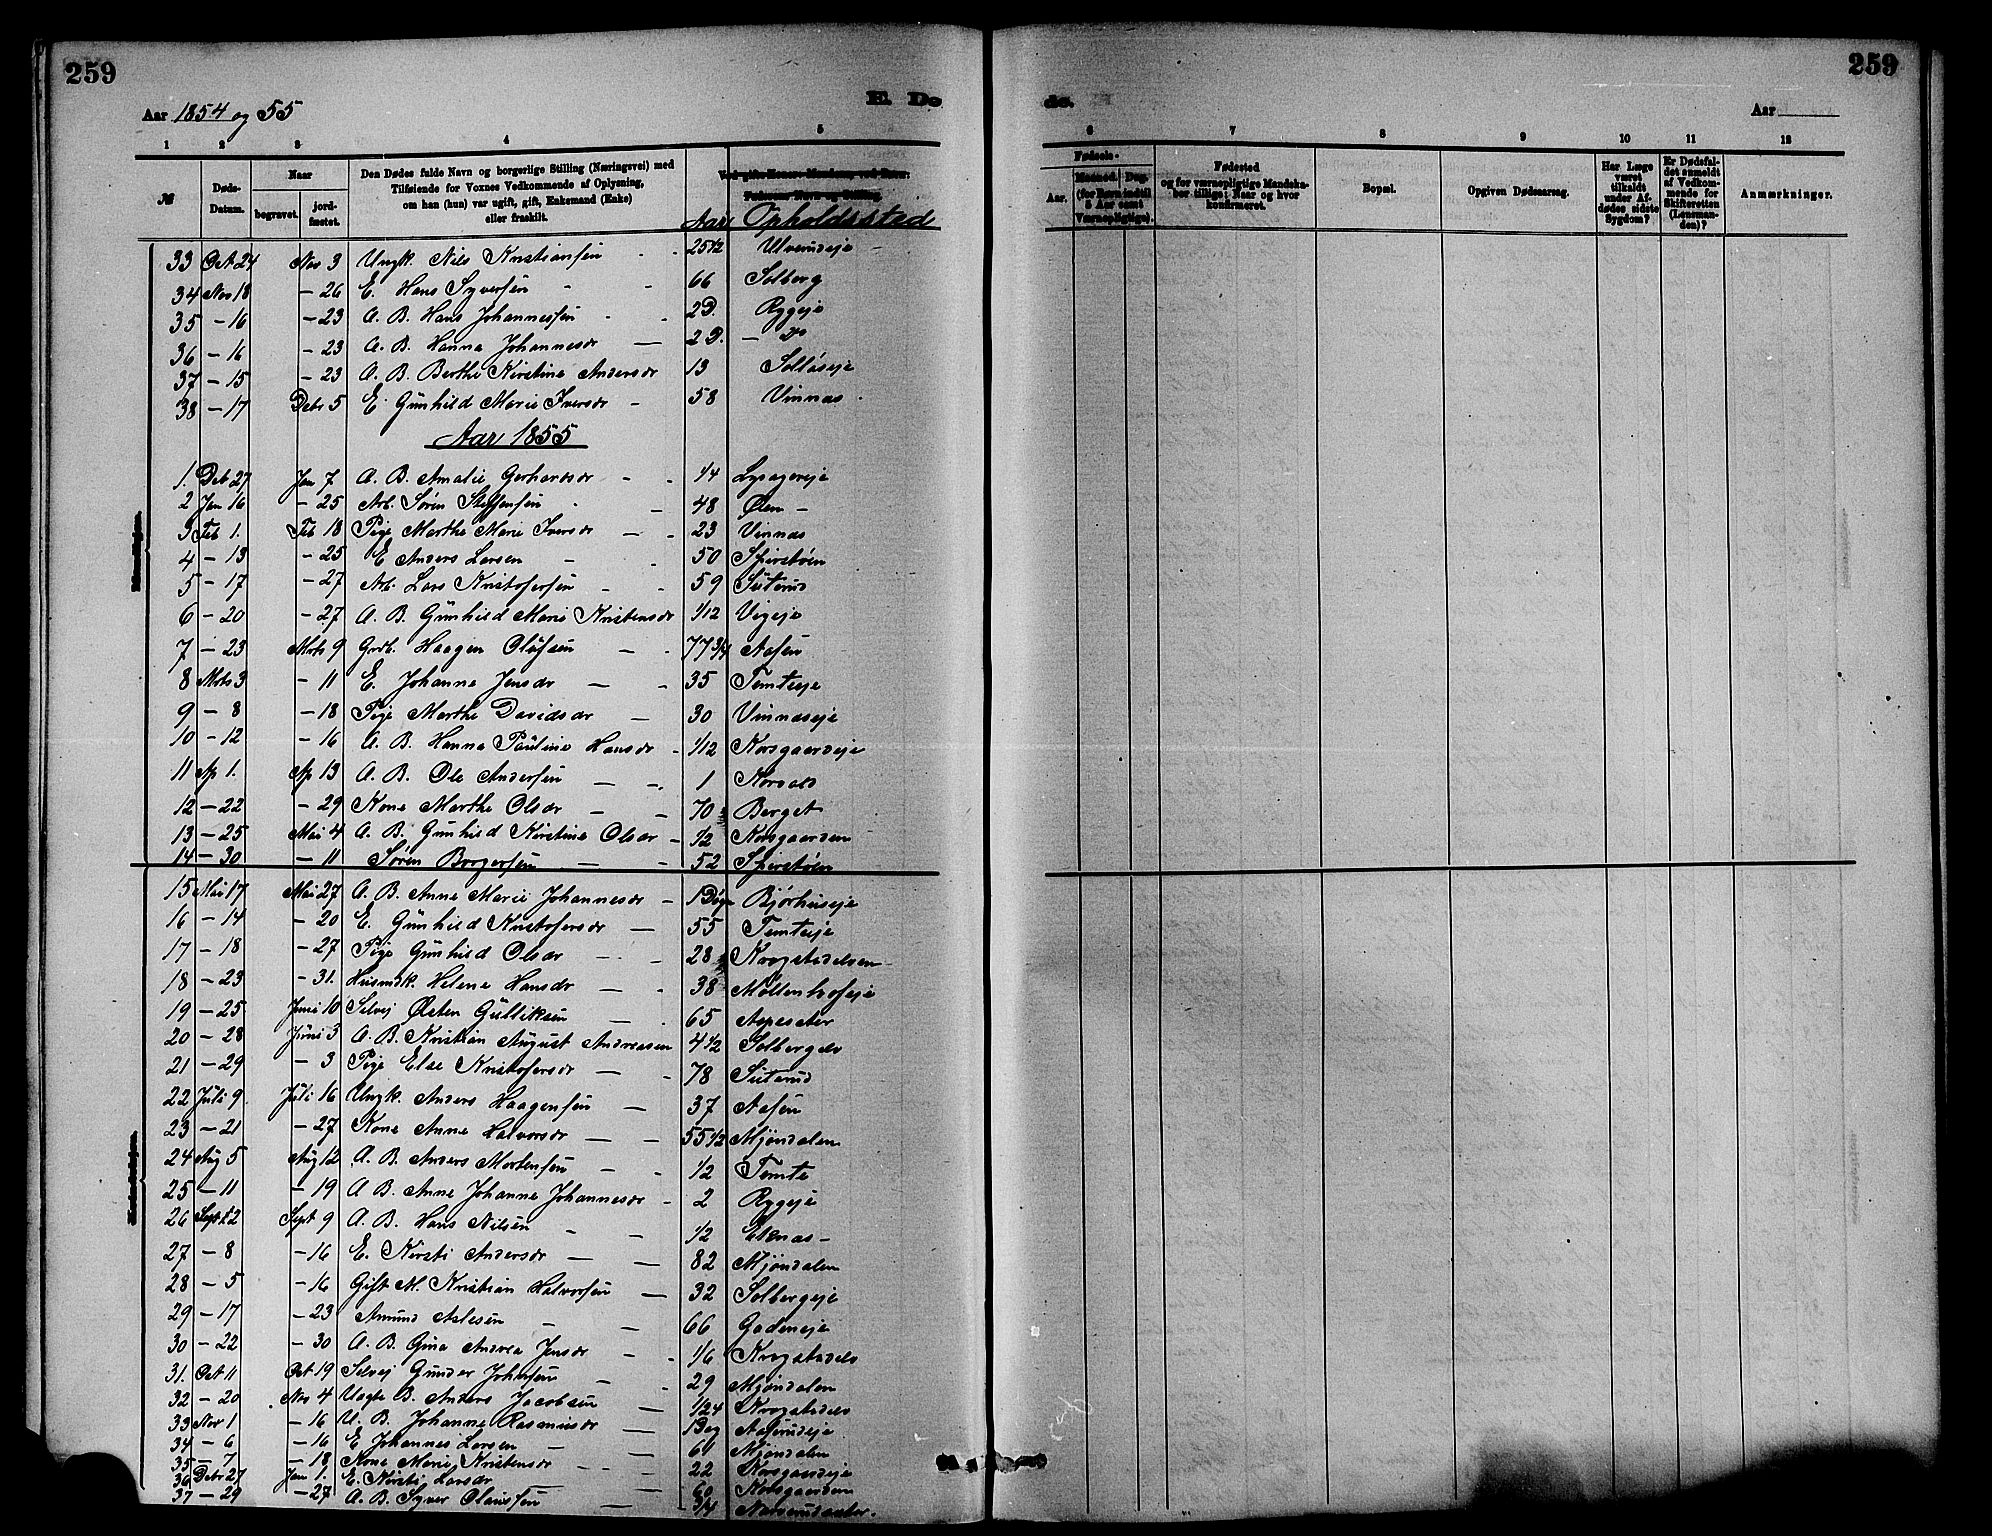 259
259
Aar 1854 og 55
E. Dø
de.
Aar
1 2 3 4 5 6 7 8 9 10 11 12
№
Døds-Datum.
Naar
begravet.
jord-fæstet.
Den Dødes fulde Navn og borgerlige Stilling (Næringsvei) med
Tilføiende for Voxnes Vedkommende af Oplysning,
om han (hun) var ugift, gift, Enkemand (Enke)
eller fraskilt.
Aar Opholdssted
Fødsels-
Aar.
Maaned. Dag.
(for Børn indtil
5 Aar samt
Værnepligtige).
Fødested
og for værnepligtige Mandska-
ber tillige: Naar og hvor
konfirmeret.
Bopæl.
Opgiven Dødsaarsag.
Har Læge
været
tilkaldt
under Af-
dødes sidste
Sygdom?
Er Dødsfal-
det anmeldt
af Vedkom-
mende for
Skifteretten
(Lensman-
den)?
Anmærkninger.
33 Oct 24 Nov 3 Ungk. Nils Kristiansen 25 1/2 Ulverudeje
34 Nov 18 - 26 E. Hans Syversen 66 Solberg
35 - 16 - 23 A. B. Hans Johannessen 2 D. Rygeje
36 - 16 - 23 A. B. Hanna Johannesdr 2 D. - Do
37 - 15 - 23 A. B. Berthe Kirstine Andersdr 13 Solløseje
38 - 17 Debr 5 E. Gunhild Marie Iversdr 58 Vinnas
Aar 1855
1. Deb 27 Jan 7 A. B. Amalie Gerhardsdr 1/4 Lysagereje
2 Jan 16 - 25 Arb. Søren Steffensen 48 Øen -
3 Feb 1. Feb 18 Pige Marthe Marie Iversdr 23 Vinnas
4 - 13 - 25 E Anders Larsen 50 Spirstøen
5 - 17 - 27 Arb. Lars Kristofersen 59 Stuterud
6 - 20 - 27 A. B. Gunhild Marie Kristensdr 1/12 Vigeje
7 - 23 Mrts 9 Grdb. Haagen Olufsen 77 3/4 Aasen
8 Mrts 3 - 11 E. Johanne Jensdr 35 Temteeje
9 - 8 - 18 Pige Marthe Davidsdr 30 Vinnaseje
10 - 12 - 16 A. B. Hanna Pauline Hansdr 1/12 Korsgaardeje
11 Ap 1. Ap 13 A. B. Ole Andersen 1 Korvald
12 - 22 - 29 Kone Marthe Olsdr 70 Berget
13 - 25 Mai 4 A. B. Gunhild Kirstine Olsdr 1/2 Korsgaarden
14 - 30 - 11 Søren Borgersen 52 Spirstøen
15 Mai 17 Mai 27 A. B. Anne Marie Johannesdr 1 Døgn Bjørhuseje
16 - 14 - 20 E. Gunhild Kristofersdr 55 Temteeje
17 - 18 - 27 Pige Gunhild Olsdr 28 Krogstadelven
18 - 23 - 31. Husmdk. Helene Hansdr 38 Møllenhofeje
19 - 25 Juni 10 Selvej Østen Gulliksen 65 Aspesæter
20 - 28 Juni 3 A. B. Kristian August Andreasen 4 1/2 Solbergelv
21 - 29 - 3 Pige Else Kristofersdr 78 Stuterud
22 Juli 9. Juli 16 Ungk. Anders Haagensen 37 Aasen
23 - 21 - 27 Kone Anne Halvorsdr 55 1/2 Mjøndalen
24 Aug 5 Aug 12 A. B. Anders Mortensen 1/2 Temte
25 - 11 - 19 A B. Anne Johanne Johannesdr 2 Rygeje
26 Sept 2 Sept 9 A. B. Hans Nilsen 1/2 Eknas -
27 - 8 - 16 E. Kirsti Andersdr 82 Mjøndalen
28 - 5 - 16 Gift M. Kristian Halvorsen 32 Solbergeje
29 - 17 - 23 Amund Aslesen 66 Godeneje
30 - 22 - 30 A. B. Gina Andrea Jensdr 1/6 Krogstadelv
31. Oct 11 Oct 19 Selvej Gunder Johnsen 29 Mjøndalen
32 - 20 Nov 4 Uegte B. Anders Jacobsen 1/24 Krogstadelv
33 Nov 1 - 16 U. B. Johanne Rasmusdr 1 Dag Aaserudeje
34 - 6 - 16 E Johannes Larsen 61 Mjøndalen
35 - 7 - 18 Kone Marie Kristensdr 22 Korsgaardeje
36 Debr 27 Jan 1. E. Kirsti Larsdr 60 Korsgaarden
37 - 29 - 27 A. B. Syver Olaussen 3/4